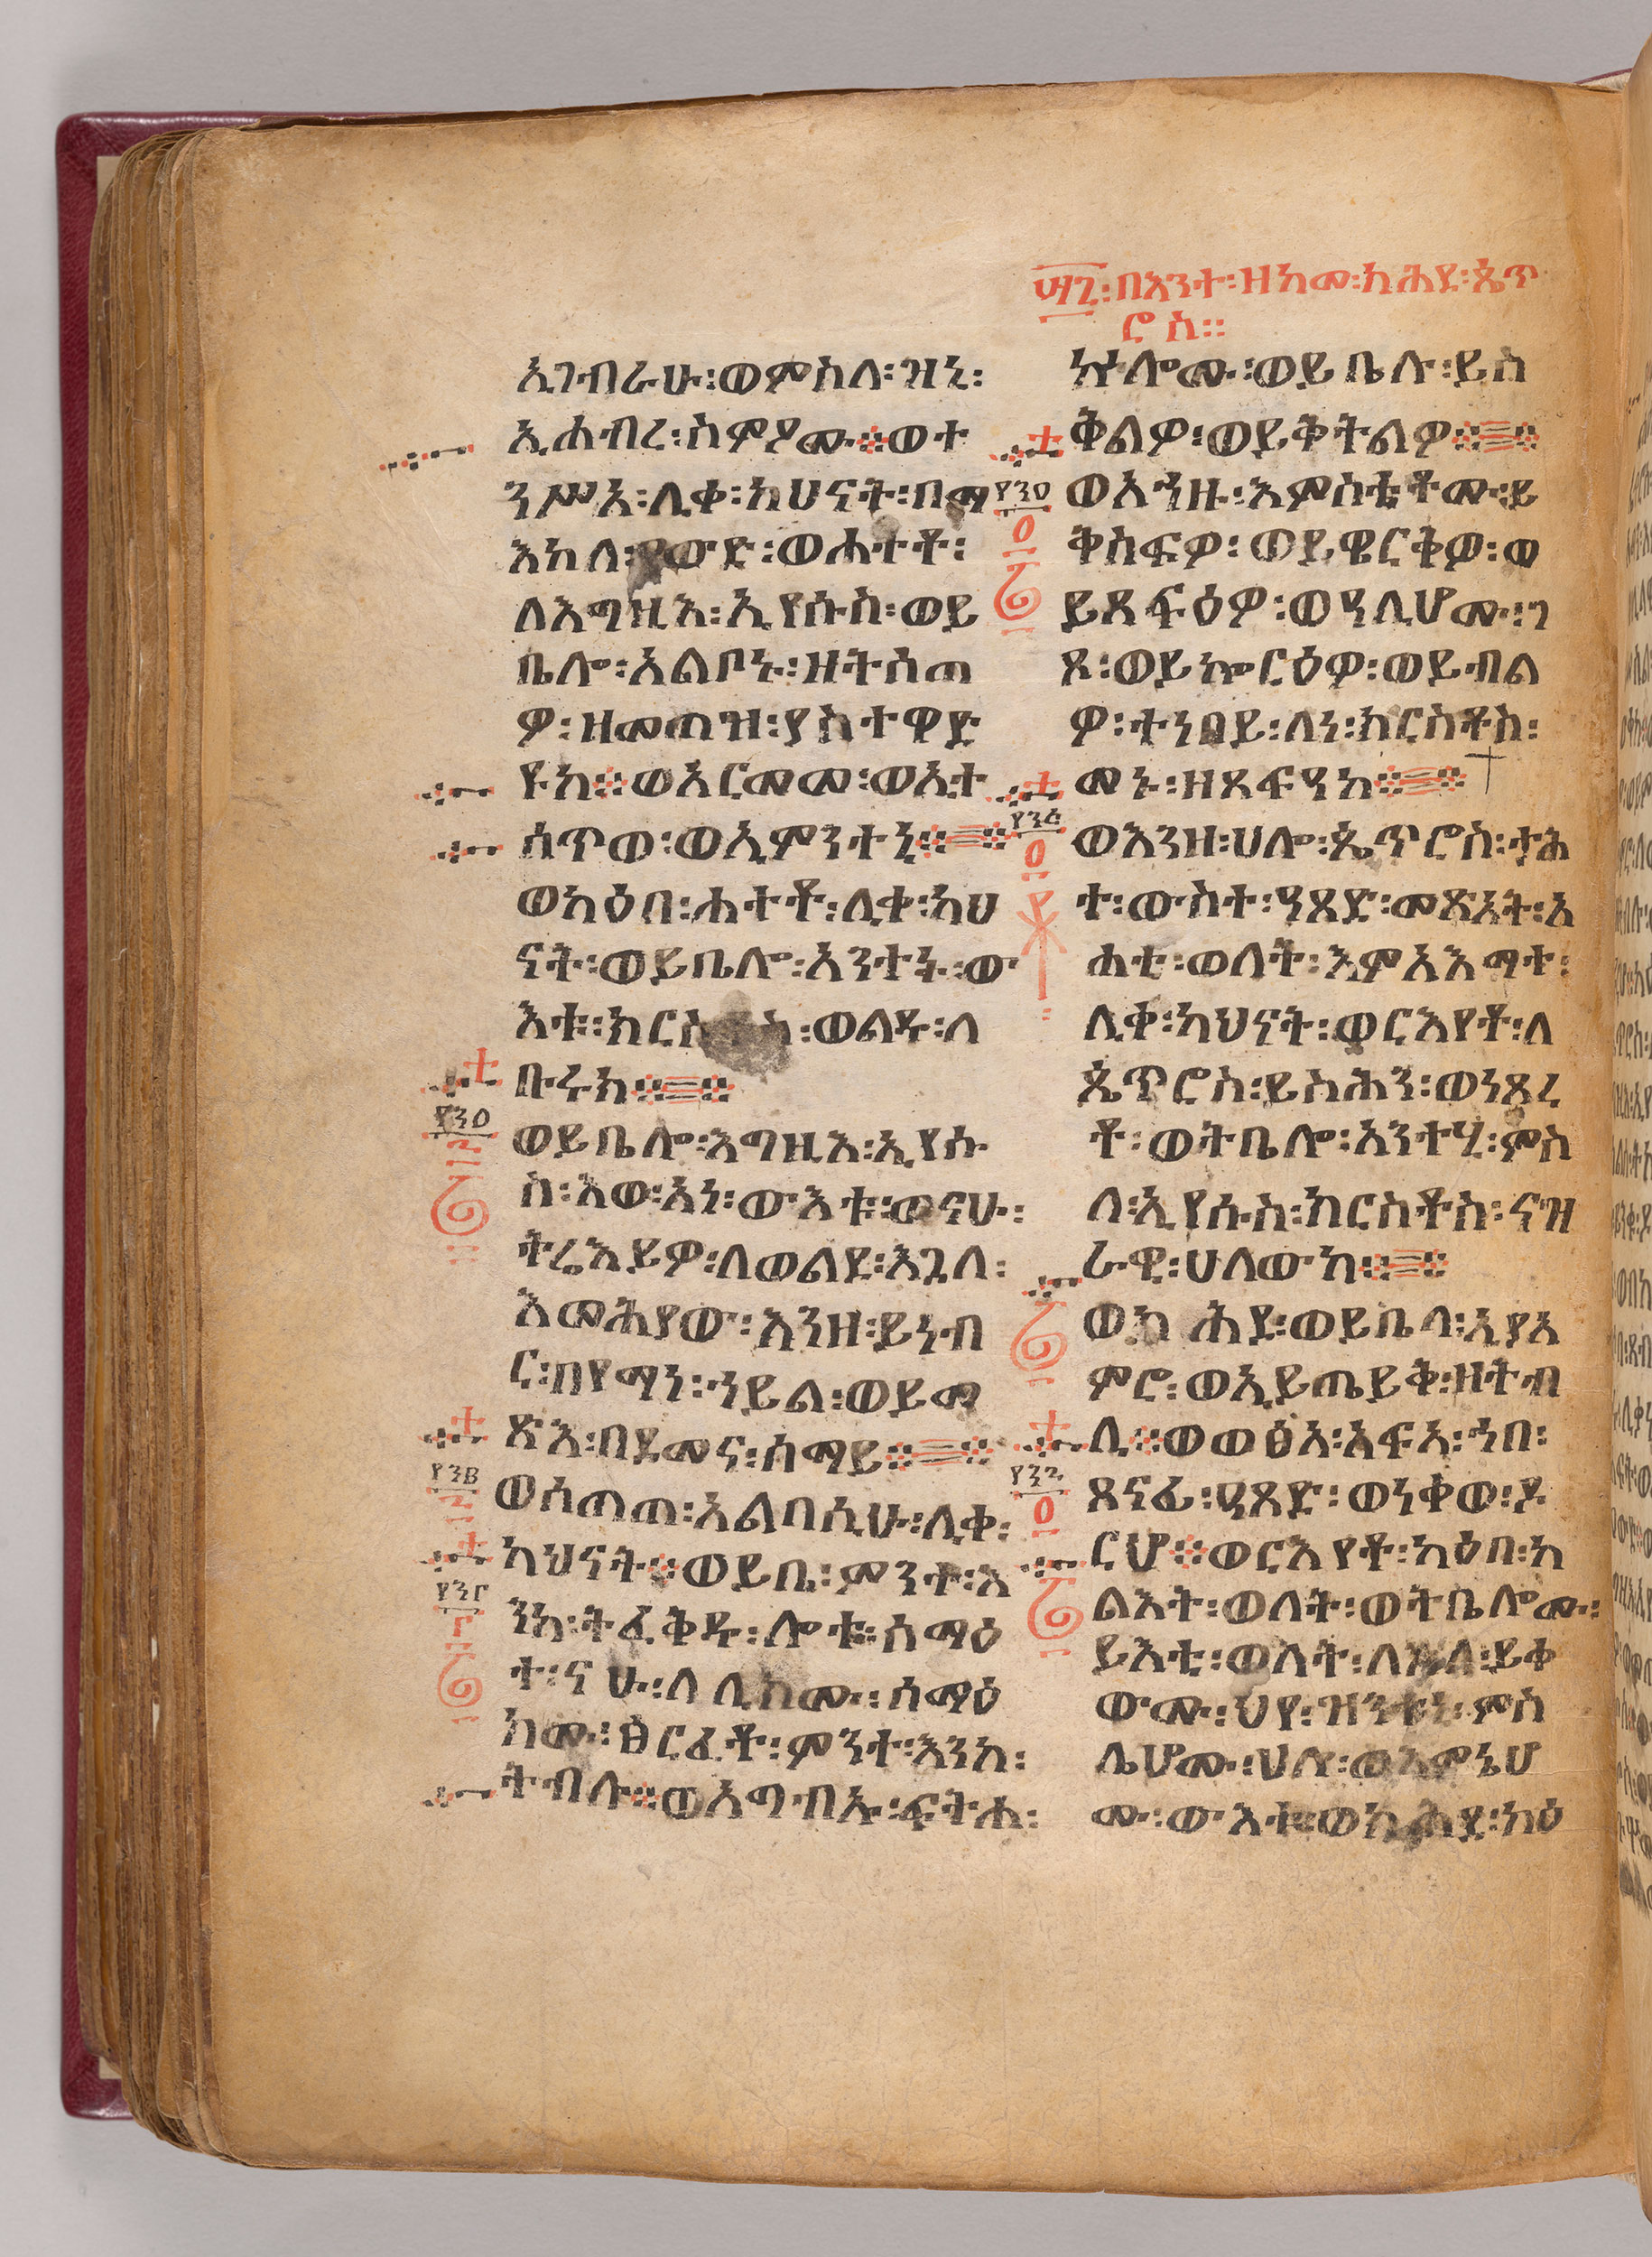 ፶፫፡በእንተ፡ዘከመ፡ክሕደ፡ጴጥ
ሮስ።
ኢገብራሁ፡ወምስለ፡ዝኒ፡
ኢሐብረ፡ስምዖሙ፨ወተ
ንሥአ፡ሊቀ፡ካህናት፡በማ
እከለ፡ዐውድ፡ወሐተቶ፡
ለእግዚእ፡ኢየሱስ፡ወይ
ቤሎ፡አልቦኑ፡ዘትሰጠ
ዎ፡ዘመጠዝ፡ያስተዋድ
ዩከ፨ወአርመመ፡ወአተ
ሰጥወ፡ወኢምንተኒ፨፨
ወካዕበ፡ሐተቶ፡ሊቀ፡ካህ
ናት፡ወይቤሎ፡አንተኑ፡ው
እቱ፡ክርስቶስ፡ወልዱ፡ለ
ቡሩክ፨፨
፻፺፬
ወይቤሎ፡እግዚእ፡ኢየሱ
ስ፡እወ፡አነ፡ውእቱ፡ወናሁ፡
ትሬእይዎ፡ለወልደ፡እጓለ፡
እመሕያው፡እንዘ፡ይነብ
ር፡በየማነ፡ኀይል፡ወይመ
ጽእ፡በደመና፡ሰማይ፨፨
ወሰጠጠ፡አልባሲሁ፡ሊቀ፡
ካህናት፨ወይቤ፡ምንተ፡እ
ንከ፡ትፈቅዱ፡ሎቱ፡ሰማዕ
ተ፡ናሁ፡ለሊክሙ፡ሰማዕ
ክሙ፡ፅርፈቶ፡ምንተ፡እንከ፡
ትብሉ፨ወአግብኡ፡ፍትሐ፡
ኵሎሙ፡ወይቤሉ፡ይስ
ቅልዎ፡ወይቅትልዎ፨፨
ወአኀዙ፡እምስቴቶሙ፡ይ
ቅስፍዎ፡ወይዌርቅዎ፡ወ
ይጸፍዕዎ፡ወሃሊሆሙ፡ገ
ጾ፡ወይኰርዕዎ፡ወይብል
ዎ፡ተነበይ፡ለነ፡ክርስቶስ፡
መኑ፡ዘጸፍዓከ፨፨
ወእንዘ፡ሀሎ፡ጴጥሮስ፡ታሕ
ተ፡ውስተ፡ዓጸድ፡መጽአት፡አ
ሐቲ፡ወለት፡እምአእማተ፡
ሊቀ፡ካህናት፡ወርእየቶ፡ለ
ጴጥሮስ፡ይስሕን፡ወነጸረ
ቶ፡ወትቤሎ፡አንተሂ፡ምስ
ለ፡ኢየሱስ፡ክርስቶስ፡ናዝ
ራዊ፡ሀለውከ፨፨
ወክሕደ፡ወይቤላ፡ኢያአ
ምሮ፡ወኢይጤይቅ፡ዘትብ
ሊ፨ወወፅአ፡አፍአ፡ኀበ፡
ጸናፊ፡ዓጸድ፡ወነቀወ፡ዶ
ርሆ፨ወርእየቶ፡ካዕበ፡ካ
ልእት፡ወለት፡ወትቤሎሙ፡
ይእቲ፡ወለት፡ለእለ፡ይቀ
ውሙ፡ህየ፡ዝንቱኒ፡ምስ
ሌሆሙ፡ሀሎ፡ወእምኔሆ
ሙ፡ውእቱ፡ወክሕደ፡ካዕ